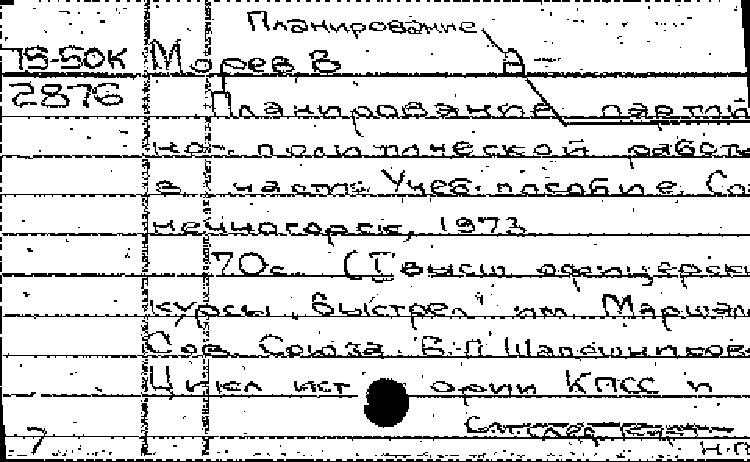 Планирование
75-50К Морев В
2876 Планирование партий
но-политической работы
в части. Учеб. пособие. Сол
нечногорск, 1973
70с. (I высш офицерск
курсы „Выстрел" им. Маршала
Сов. Союза Б.П Шапошников
Цикл истории КПСС и
См. след.
7 Н.П